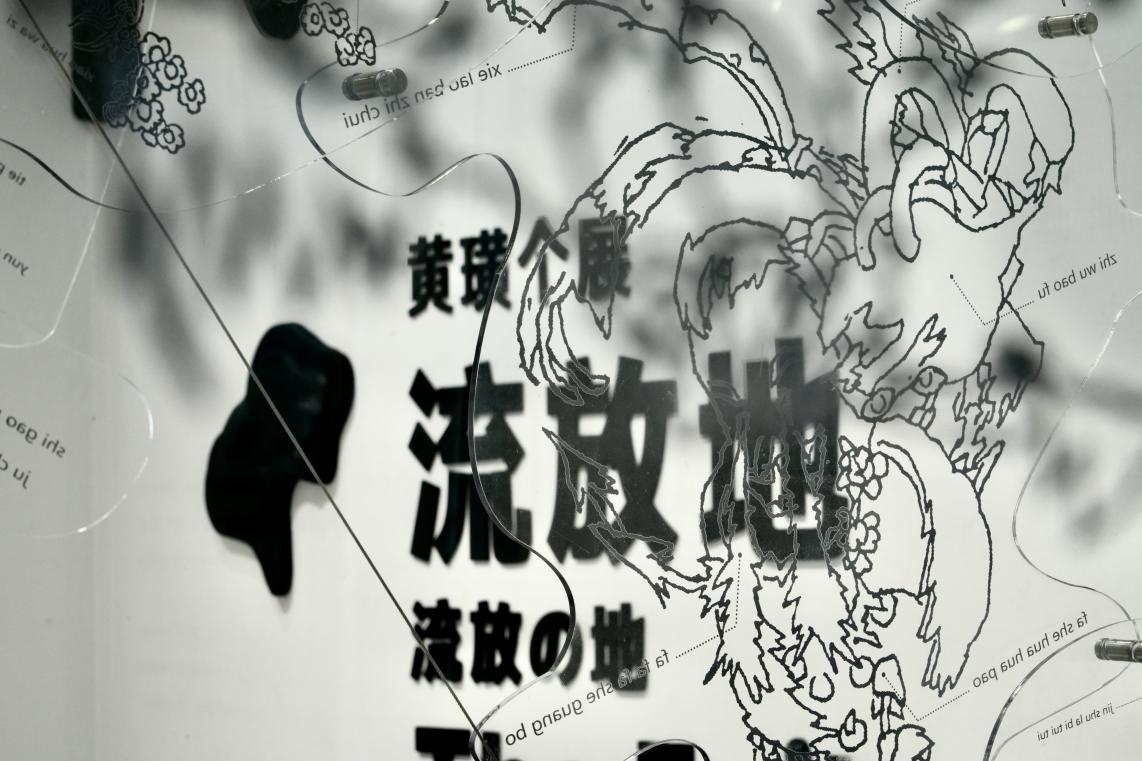 hua wa zi
xie lao ban zhi chui
tie
yun
黄璜个展
zhi wu bao fu
流放地
shi gao
流放の地
she guang bo
fa she hua hua pao
jin shu la bi tui tui